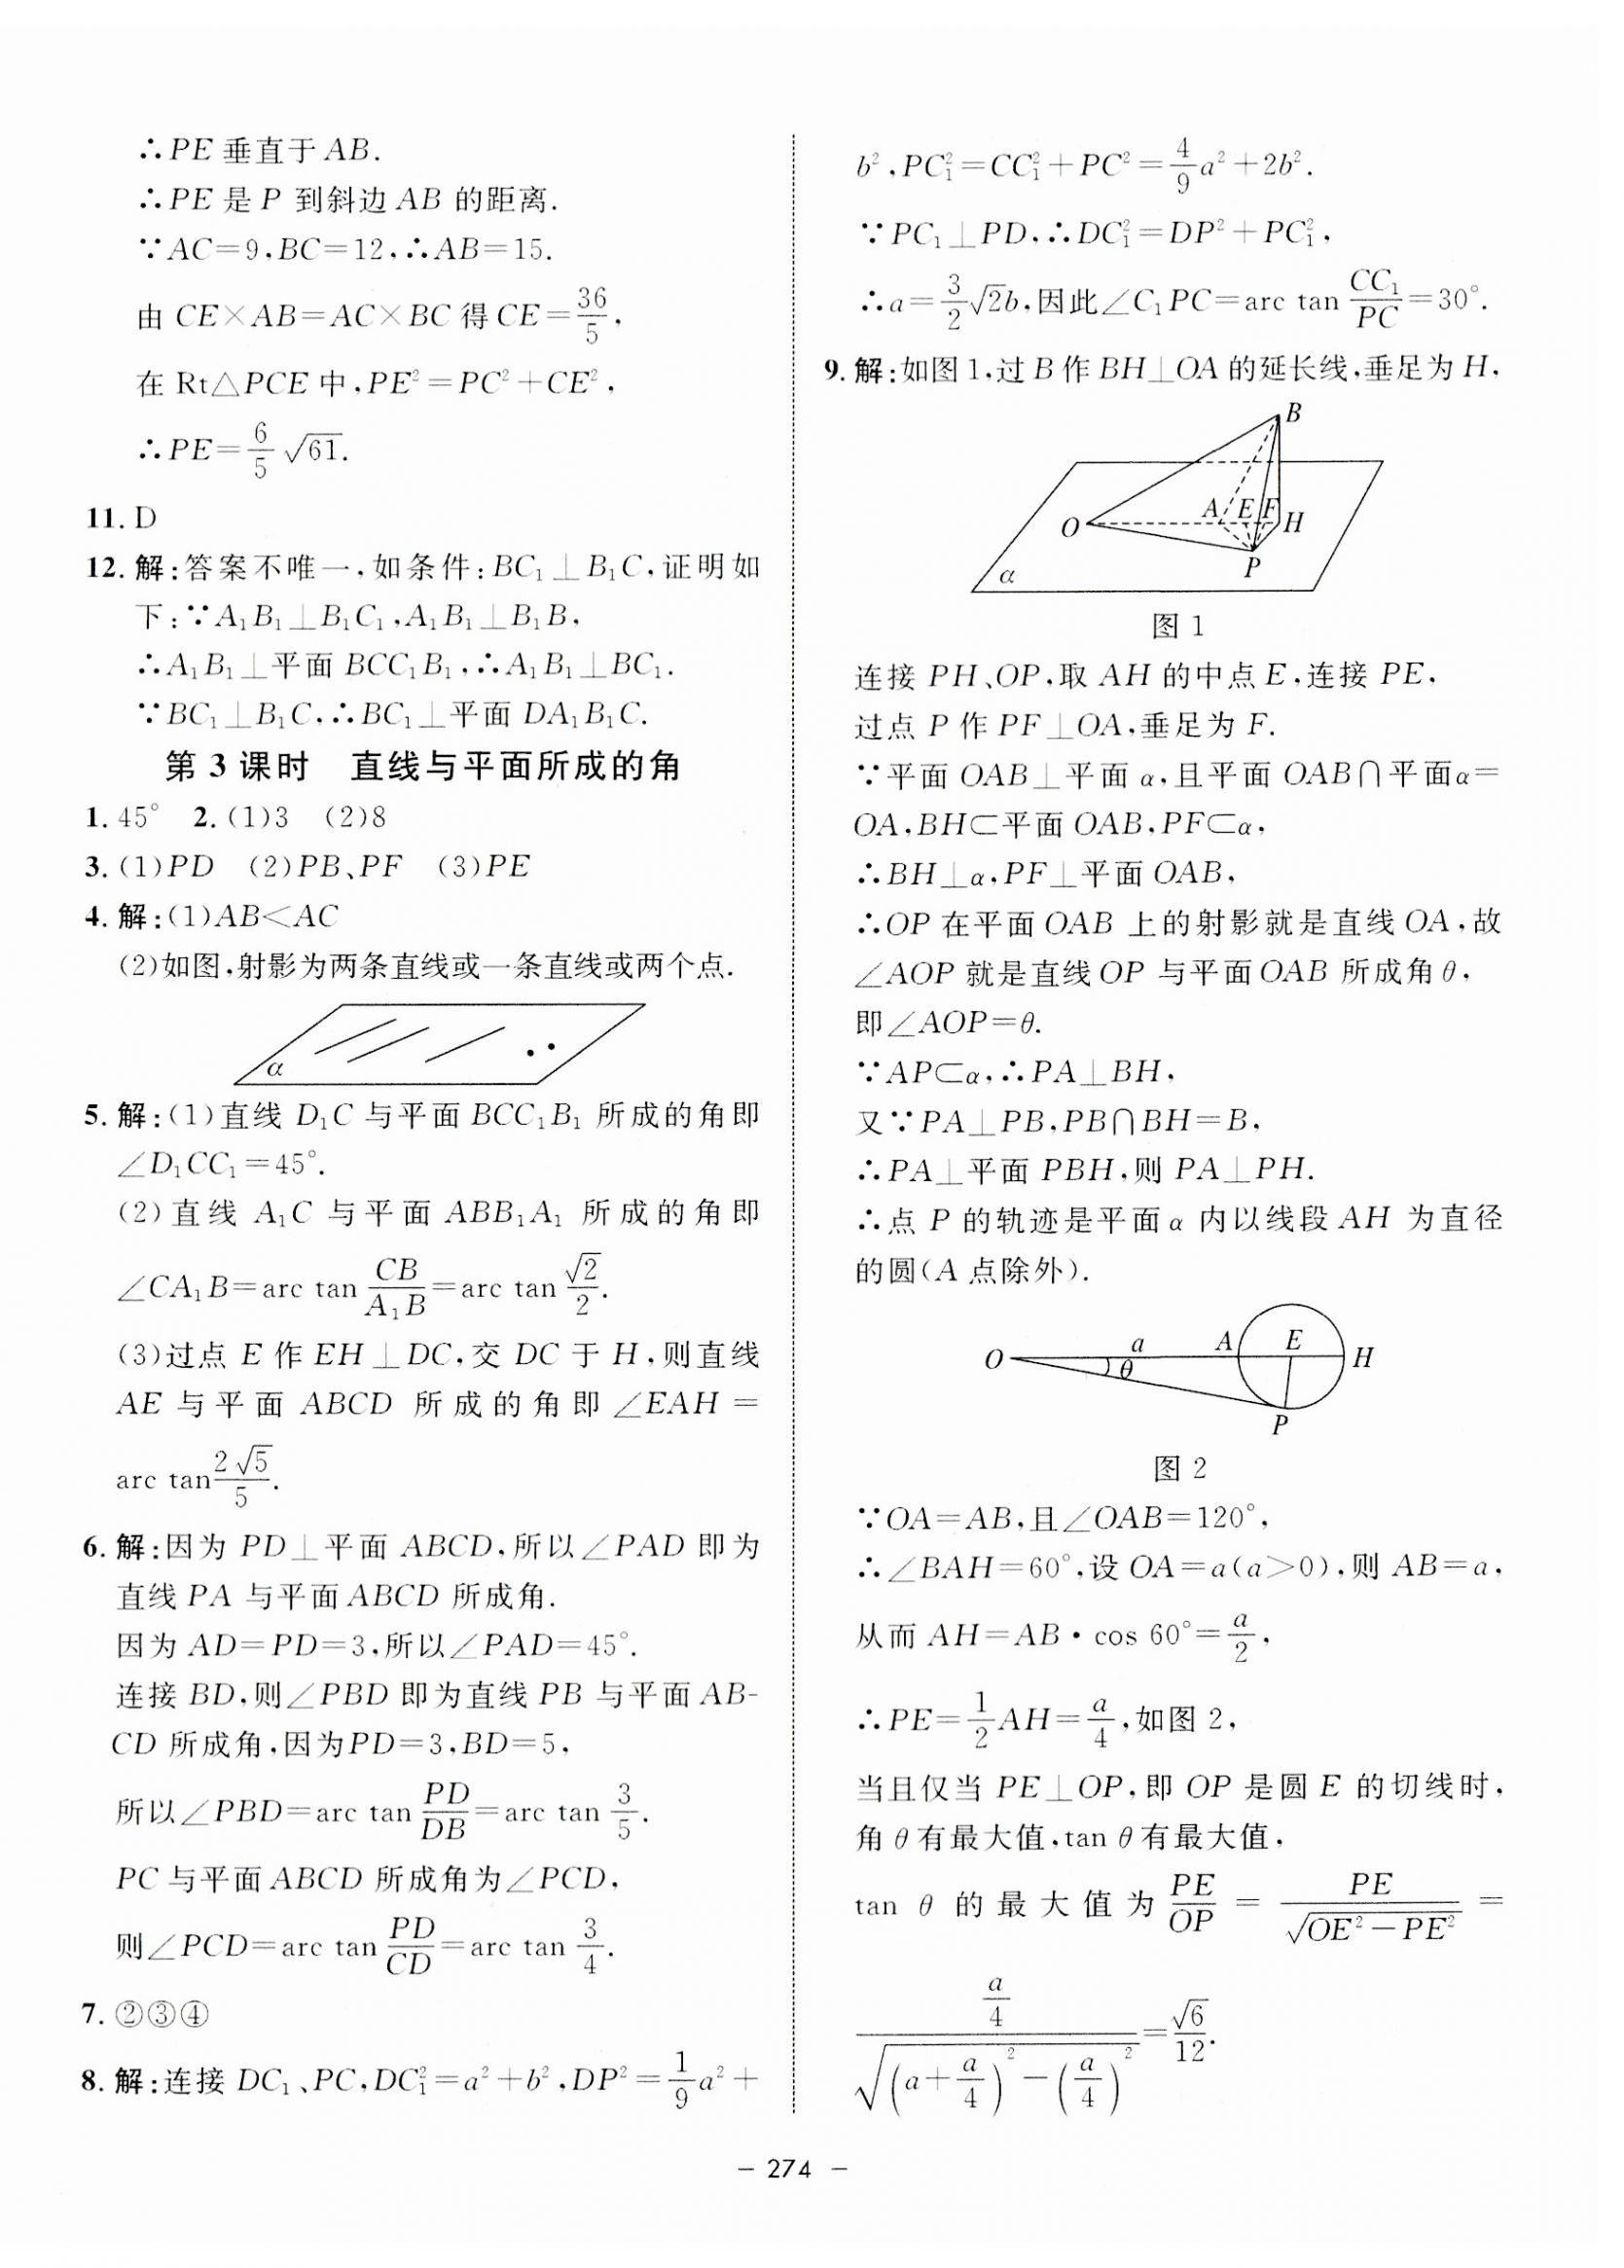 ∴PE 垂直于 AB.
∴PE 是 P 到斜边 AB 的距离.
∵AC=9,BC=12,∴AB=15.
由 CE×AB=AC×BC 得 CE=36/5,
在 Rt△PCE 中,PE²=PC²+CE²,
∴PE=6/5 √61.
11. D
12. 解:答案不唯一,如条件:BC₁⊥B₁C,证明如
下:∵A₁B₁⊥B₁C₁,A₁B₁⊥B₁B,
∴A₁B₁⊥平面 BCC₁B₁,∴A₁B₁⊥BC₁.
∵BC₁⊥B₁C,∴BC₁⊥平面 DA₁B₁C.
第 3 课时 直线与平面所成的角
1. 45° 2. (1)3 (2)8
3. (1)PD (2)PB、PF (3)PE
4. 解:(1)AB<AC
(2)如图,射影为两条直线或一条直线或两个点.
α
5. 解:(1)直线 D₁C 与平面 BCC₁B₁ 所成的角即
∠D₁CC₁=45°.
(2)直线 A₁C 与平面 ABB₁A₁ 所成的角即
∠CA₁B=arc tan CB/A₁B=arc tan √2/2.
(3)过点 E 作 EH⊥DC,交 DC 于 H,则直线
AE 与平面 ABCD 所成的角即∠EAH=
arc tan 2√5/5.
6. 解:因为 PD⊥平面 ABCD,所以∠PAD 即为
直线 PA 与平面 ABCD 所成角.
因为 AD=PD=3,所以∠PAD=45°.
连接 BD,则∠PBD 即为直线 PB 与平面 AB-
CD 所成角,因为PD=3,BD=5,
所以∠PBD=arc tan PD/DB=arc tan 3/5.
PC 与平面 ABCD 所成角为∠PCD,
则∠PCD=arc tan PD/CD=arc tan 3/4.
7. ②③④
8. 解:连接 DC₁、PC,DC₁²=a²+b²,DP²=1/9 a²+
b²,PC₁²=CC₁²+PC²=4/9 a²+2b².
∵PC₁⊥PD,∴DC₁²=DP²+PC₁²,
∴a=3/2 √2b,因此∠C₁PC=arc tan CC₁/PC=30°.
9. 解:如图 1,过 B 作 BH⊥OA 的延长线,垂足为 H,
B
O
A
E
F
H
P
α
图 1
连接 PH、OP,取 AH 的中点 E,连接 PE,
过点 P 作 PF⊥OA,垂足为 F.
∵平面 OAB⊥平面 α,且平面 OAB∩平面α=
OA,BH⊂平面 OAB,PF⊂α,
∴BH⊥α,PF⊥平面 OAB,
∴OP 在平面 OAB 上的射影就是直线 OA,故
∠AOP 就是直线 OP 与平面 OAB 所成角 θ,
即∠AOP=θ.
∵AP⊂α,∴PA⊥BH,
又∵PA⊥PB,PB∩BH=B,
∴PA⊥平面 PBH,则 PA⊥PH.
∴点 P 的轨迹是平面 α 内以线段 AH 为直径
的圆(A 点除外).
O
a
θ
A
E
H
P
图 2
∵OA=AB,且∠OAB=120°,
∴∠BAH=60°,设 OA=a(a>0),则 AB=a,
从而 AH=AB·cos 60°=a/2,
∴PE=1/2 AH=a/4,如图 2,
当且仅当 PE⊥OP,即 OP 是圆 E 的切线时,
角 θ 有最大值,tan θ 有最大值,
tan θ 的最大值为 PE/OP = PE/√(OE²−PE²) =
(a/4)/√((a+a/4)²−(a/4)²)=√6/12.
– 274 –